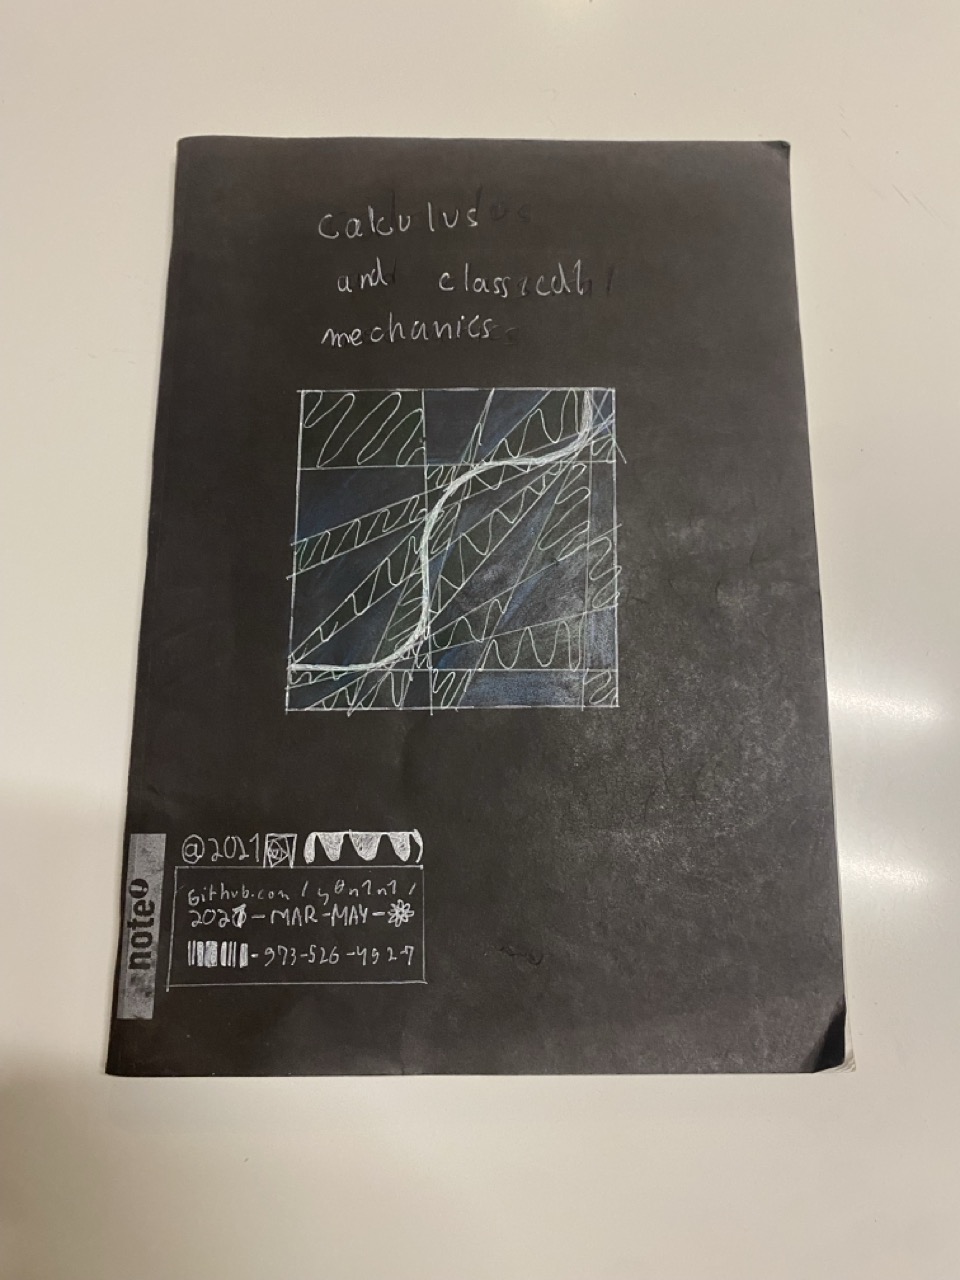 calculus
and classical
mechanics
@2021
Github.com/yθn1n1/
2021-MAR-MAY-
-973-526-492-7
note!